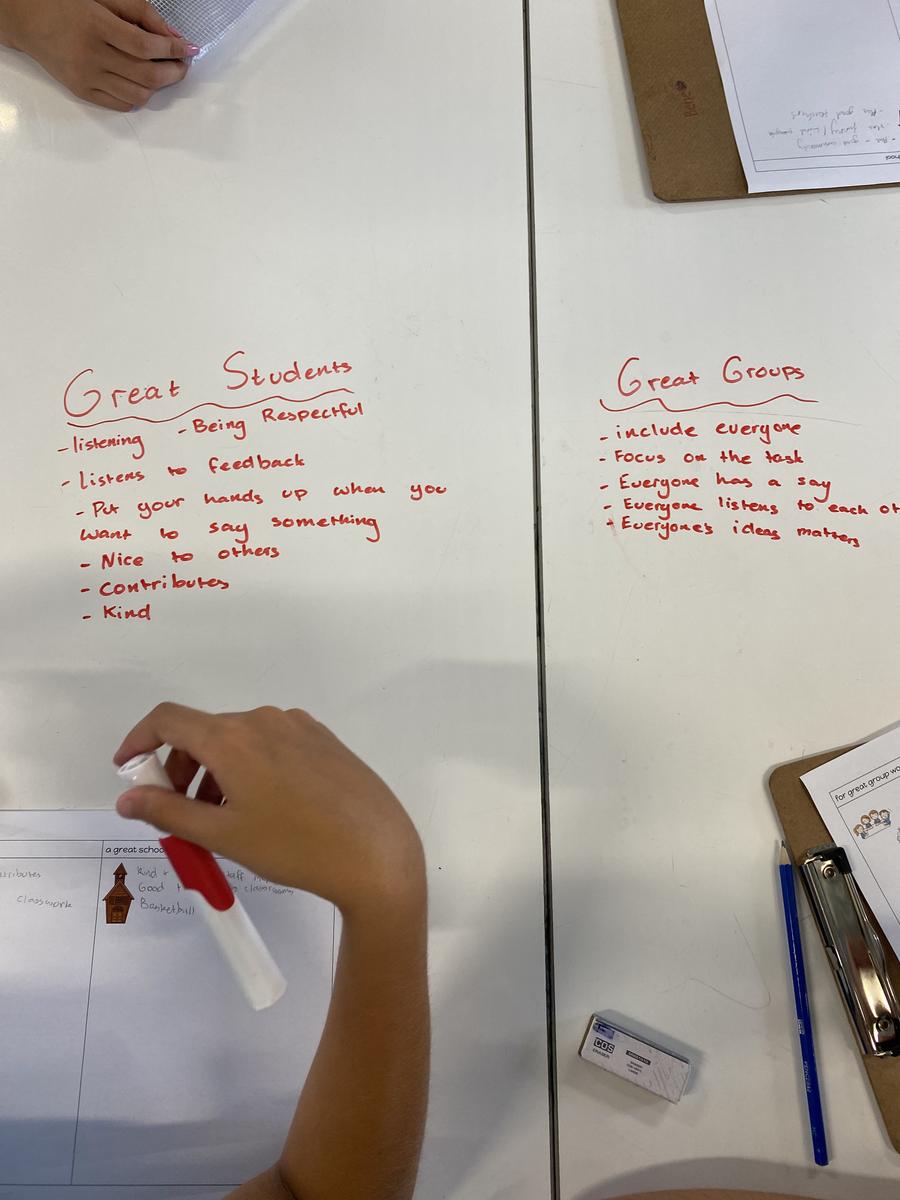 Great Students
- listening - Being Respectful
- Listens to feedback
- Put your hands up when you
want to say something
- Nice to others
- Contributes
- Kind
Great Groups
- include everyone
- Focus on the task
- Everyone has a say
- Everyone listens to each ot
- Everyone's ideas matters
a great schoo
Kind
Good
classrooms
Basketball
classwork
for great group wo
COS
ERASER